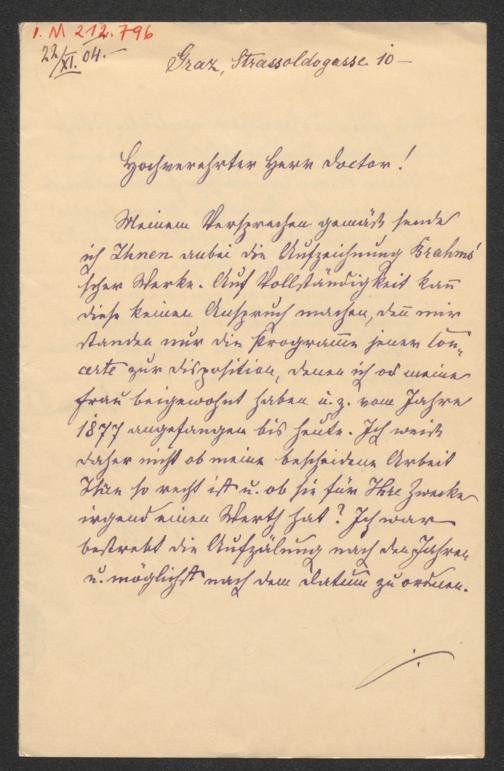 I. M 212.796
22/XI. 04.–
Graz, Strassoldogasse 10 –
Hochverehrter Herr Doctor!
Meinem Versprechen gemäß sende
ich Ihnen anbei die Aufzeichnung Brahms'
scher Werke. Auf Vollständigkeit kann
diese keinen Anspruch machen, denn mir
standen nur die Programme jener Con-
certe zur Disposition, denen ich od meine
Frau beigewohnt haben u. z. vom Jahre
1877 angefangen bis heute. Ich weiß
daher nicht ob meine bescheidene Arbeit
Ihnen so recht ist u. ob sie für Ihre Zwecke
irgend einen Werth hat? Ich war
bestrebt die Aufzälung nach den Jahren
u. möglichst nach dem Datum zu ordnen.